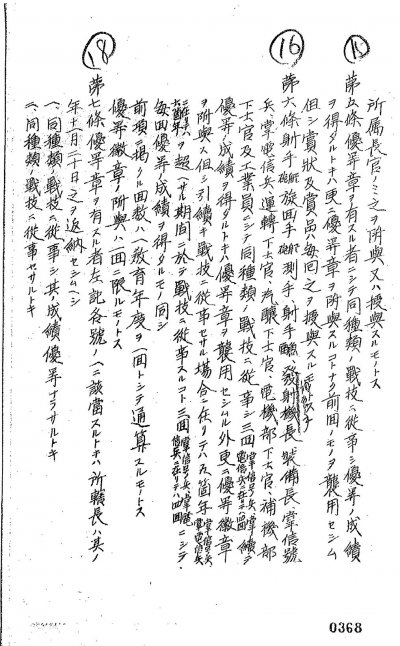 15
所属長官ノミ之ヲ附與又ハ授與スルモノトス
第五條優昇章ヲ有スル者ニシテ同種類ノ戦技ニ從事シ優昇ノ成績
ヲ得タルトキハ更ニ優昇章ヲ附與スルコトナク前回ノモノヲ襲用セシム
但シ賞狀及賞品ハ毎回之ヲ授與スルモノトス
16
第六條射手 旋回手 測手、射手 發射機長 裝備長、掌信號
兵、掌電信兵、運轉下士官、汽釀下士官、電機部下士官、補機部
下士官及工業員ニシテ同種類ノ戦技ニ從事シ三回 續シテ
優昇ノ成績ヲ得タルトキハ優昇章ヲ襲用セシムル外更ニ優昇徽章
ヲ附與ス但シ引續キ戦技ニ從事セサル場合ニ在リテハ五箇年
ヲ超ヘサル期間ニ於テ戦技ニ從事スルコト三回 ニシテ
毎回優昇ノ成績ヲ得タルモノ同シ
前項ニ掲クル回數ハ一教育年度ヲ一回トシテ通算スルモノトス
優昇徽章ノ附與ハ一回ニ限ルモノトス
18
第七條優昇章ヲ有スル者左記各號ノ一ニ該當スルトキハ所轄長ハ其ノ
年十二月二十日之ヲ返納セシムヘシ
一、同種類ノ戦技ニ從事シ其ノ成績優昇ナラサルトキ
二、同種類ノ戦技ニ從事セサルトキ
0368